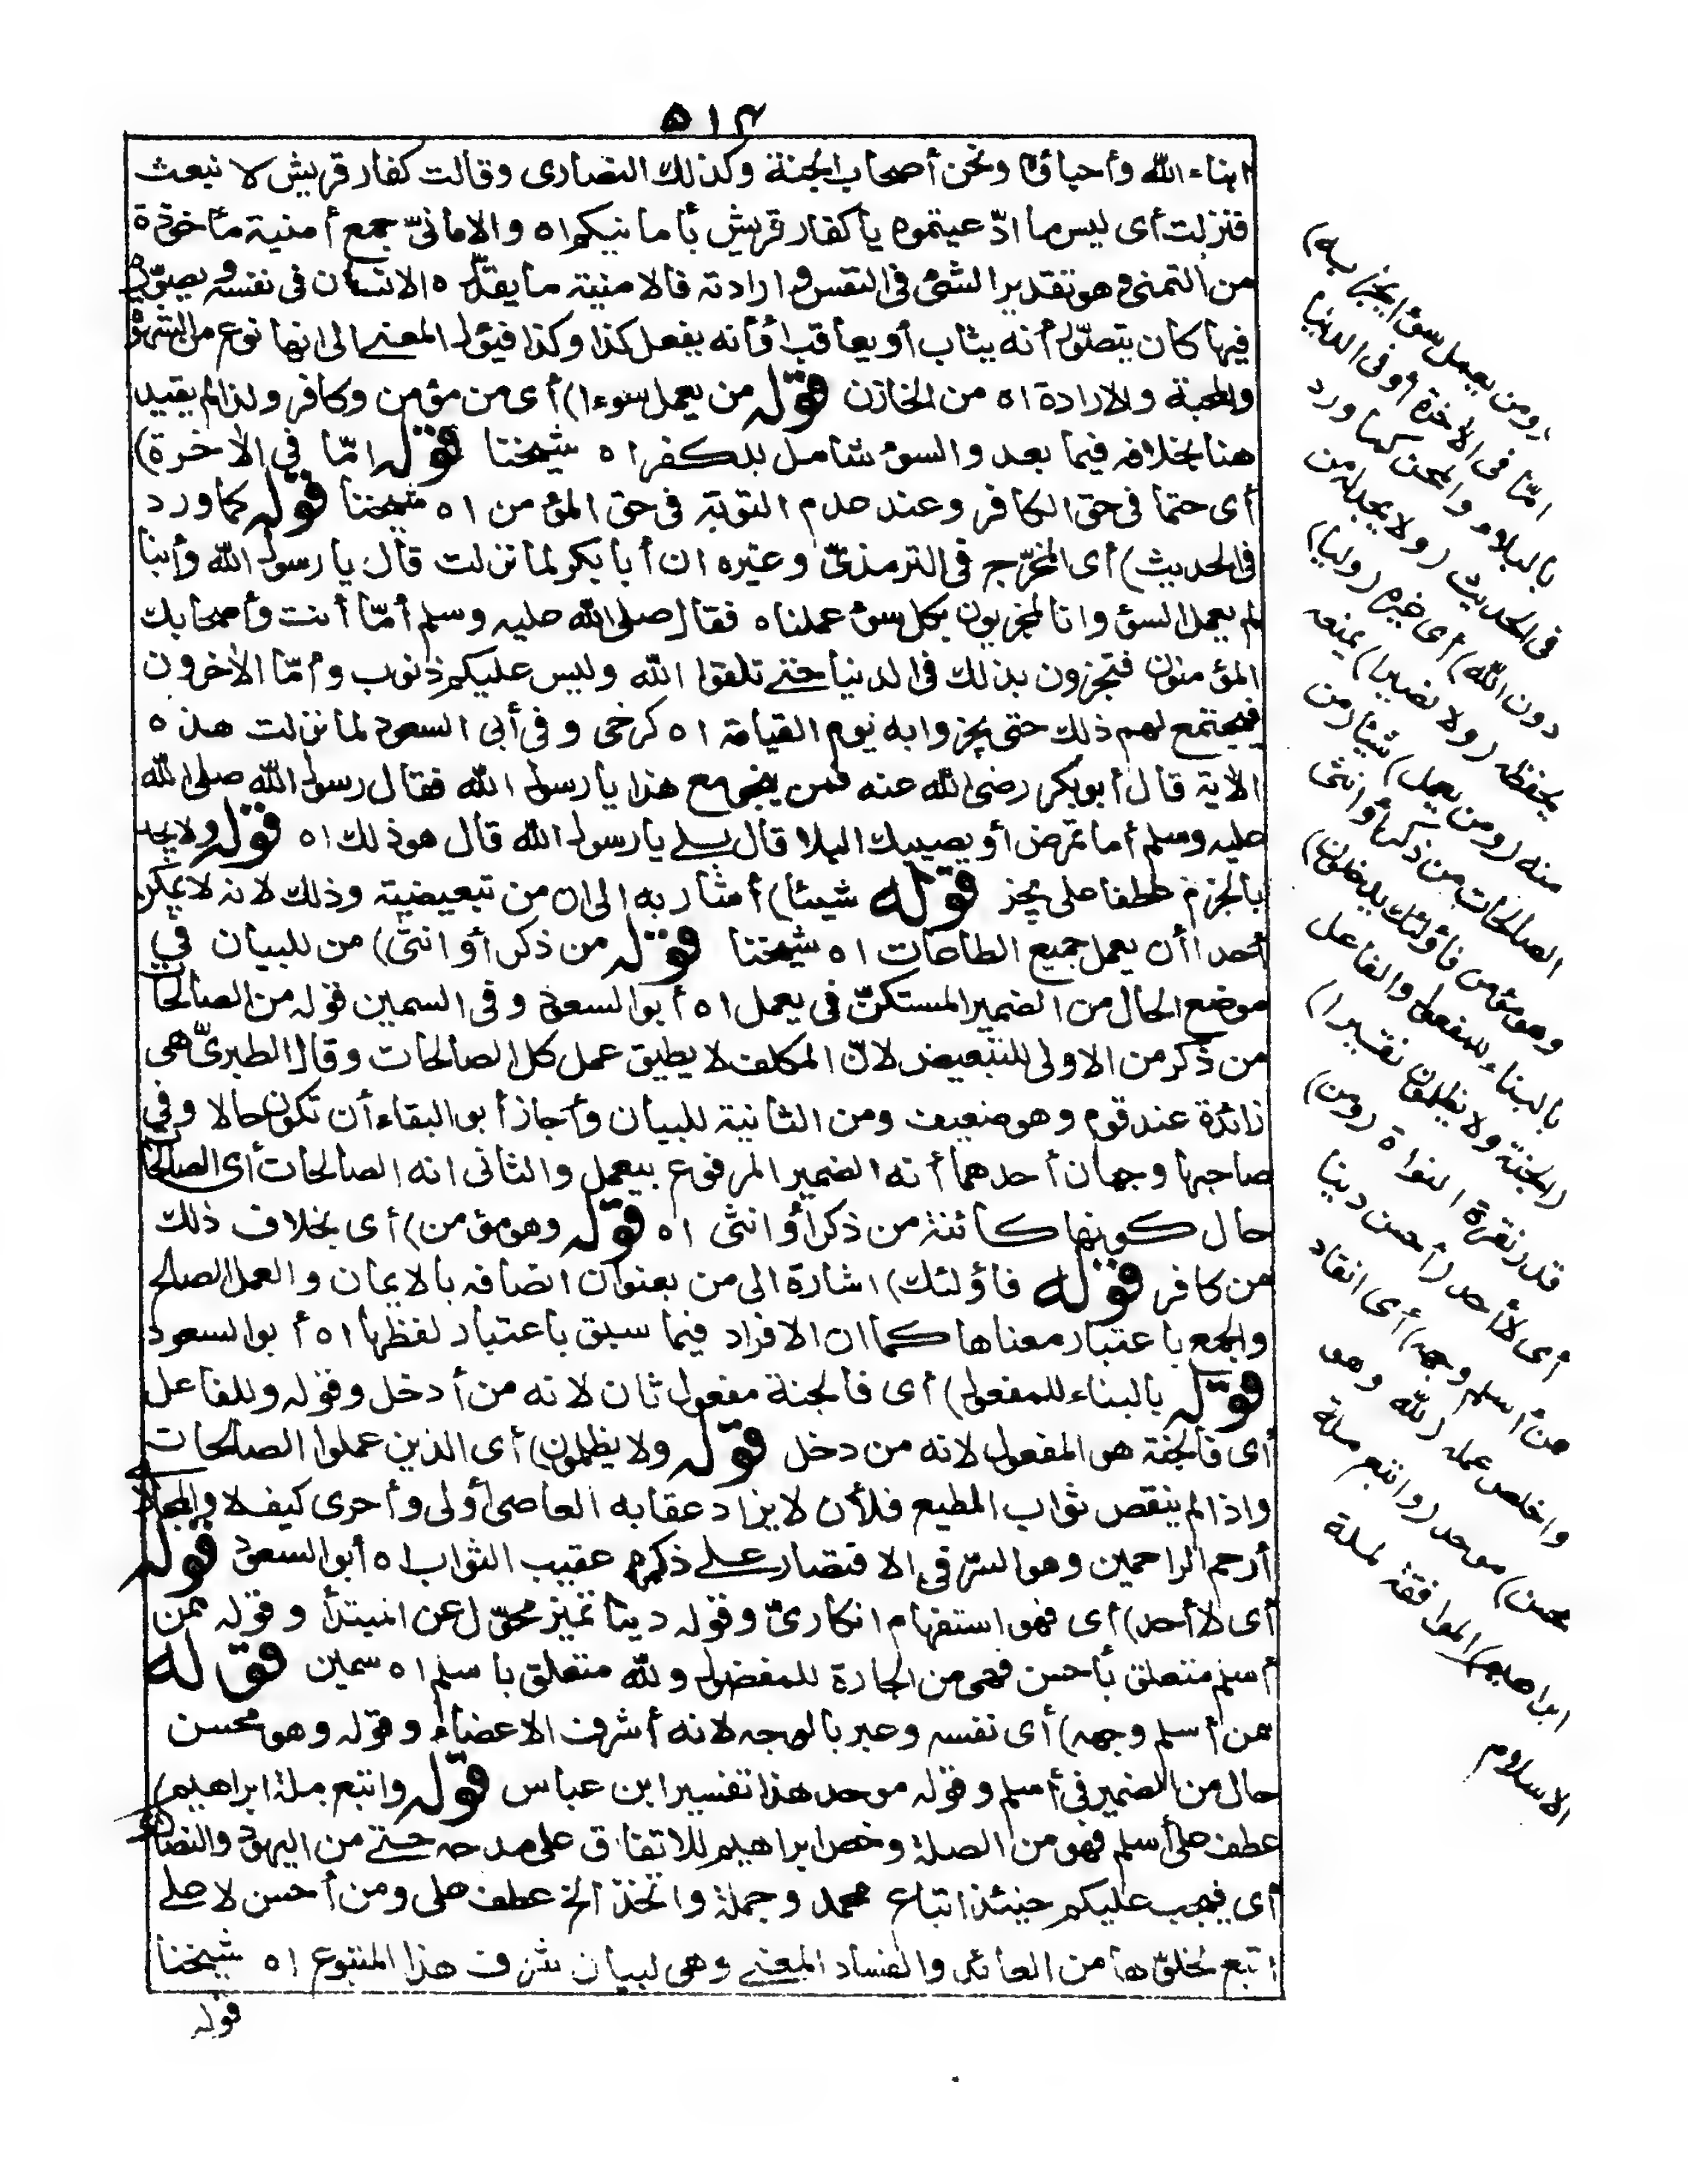 ٥١٣
ابناء الله وأحباؤه ونحن أصحاب الجنة وكذلك النصارى وقالت كفار قريش لا نبعث
فنزلت أى ليس ما ادّعيتموه يا كفار قريش بأمانيكم اه والامانىّ جمع أمنية مأخوذة
من التمنى وهو تقدير الشئ فى النفس وارادته فالامنية ما يقدّره الانسان فى نفسه ويصوّره
فيها كان يتصوّر أنه يثاب أو يعاقب أو أنه يفعل كذا وكذا فيؤل المعنى الى انها نوع من الشهوة
والمحبة والارادة اه من الخازن قوله من يعمل سوءا) أى من مؤمن وكافر ولذا لم يقيد
هنا بخلافه فيما بعد والسوء شامل للكفر اه شيخنا قوله امّا فى الاخرة)
أى حتما فى حق الكافر وعند عدم التوبة فى حق المؤمن اه شيخنا قوله كما ورد
فى الحديث) أى المخرّج فى الترمذىّ وغيره ان أبا بكر لما نزلت قال يا رسول الله وأينا
لم يعمل السوء وانا لمجزيون بكل سوء عملناه فقال صلى الله عليه وسلم أمّا أنت وأصحابك
المؤمنون فتجزون بذلك فى الدنيا حتى تلقوا الله وليس عليكم ذنوب وأمّا الاخرون
فيجتمع لهم ذلك حتى يجزوا به يوم القيامة اه كرخى وفى أبى السعود لما نزلت هذه
الاية قال أبو بكر رضى الله عنه فمن ينجى مع هذا يا رسول الله فقال رسول الله صلى الله
عليه وسلم أما تمرض أو يصيبك البلا قال بلى يا رسول الله قال هو ذلك اه قوله ولا يجد
بالجزم عطفا على يجز قوله شيئا) أشار به الى ان من تبعيضية وذلك لانه لا يمكن
أحدا أن يعمل جميع الطاعات اه شيخنا قوله من ذكر أو انثى) من للبيان فى
موضع الحال من الضمير المستكنّ فى يعمل اه أبو السعود وفى السمين قوله من الصالحات
من ذكر من الاولى للتبعيض لانّ المكلف لا يطيق عمل كل الصالحات وقال الطبرىّ هى
زائدة عند قوم وهو ضعيف ومن الثانية للبيان وأجاز أبو البقاء أن تكون حالا وفى
صاحبها وجهان أحدهما أنه الضمير المرفوع بيعمل والثانى انه الصالحات أى الصالحات
حال كونها كائنة من ذكر أو انثى اه قوله وهو مؤمن) أى بخلاف ذلك
من كافر قوله فاؤلئك) اشارة الى من بعنوان اتصافه بالايمان والعمل الصالح
والجمع باعتبار معناها كما ان الافراد فيما سبق باعتبار لفظها اه أبو السعود
قوله بالبناء للمفعول) أى فالجنة مفعول ثان لانه من أدخل وقوله وللفاعل
أى فالجنة هى المفعول لانه من دخل قوله ولا يظلمون) أى الذين عملوا الصالحات
واذا لم ينقص ثواب المطيع فلأن لا يزاد عقابه العاصى أولى وأحرى كيف لا والمجازى
أرحم الراحمين وهو السرّ فى الاقتصار على ذكره عقيب الثواب اه أبو السعود قوله
أى لا أحد) أى فهو استفهام انكارىّ وقوله دينا تمييز محوّل عن المبتدأ وقوله ممن
أسلم متعلق بأحسن فهى من الجارة للمفضول ولله متعلق باسلم اه سمين قوله
ممن أسلم وجهه) أى نفسه وعبر بالوجه لانه أشرف الاعضاء وقوله وهو محسن
حال من الضمير فى أسلم وقوله موحد هذا تفسير ابن عباس قوله واتبع ملة ابراهيم)
عطف على أسلم فهو من الصلة وخص ابراهيم للاتفاق على مدحه حتى من اليهود والنصارى
أى فيجب عليكم حينئذ اتباع محمد وجملة واتخذ الخ عطف على ومن أحسن لا على
اتبع لخلوّها من العائد والفساد المعنى وهى لبيان شرف هذا المتبوع اه شيخنا
قوله
ومن يعمل سوءا يجز به)
امّا فى الآخرة أو فى الدنيا
بالبلاء والمحن كما ورد
فى الحديث (ولا يجد له من
دون الله) أى غيره (وليا)
يحفظه (ولا نصيرا) يمنعه
منه (ومن يعمل) شيئا (من
الصالحات من ذكر أو انثى
وهو مؤمن فاؤلئك يدخلون)
بالبناء للمفعول والفاعل
(الجنة ولا يظلمون نقيرا)
قدر نقرة النواة (ومن)
أى لا أحد (أحسن دينا
ممن أسلم وجهه) أى انقاد
واخلص عمله (لله وهو
محسن) موحد (واتبع ملة
ابراهيم) الموافقة لملة
الاسلام